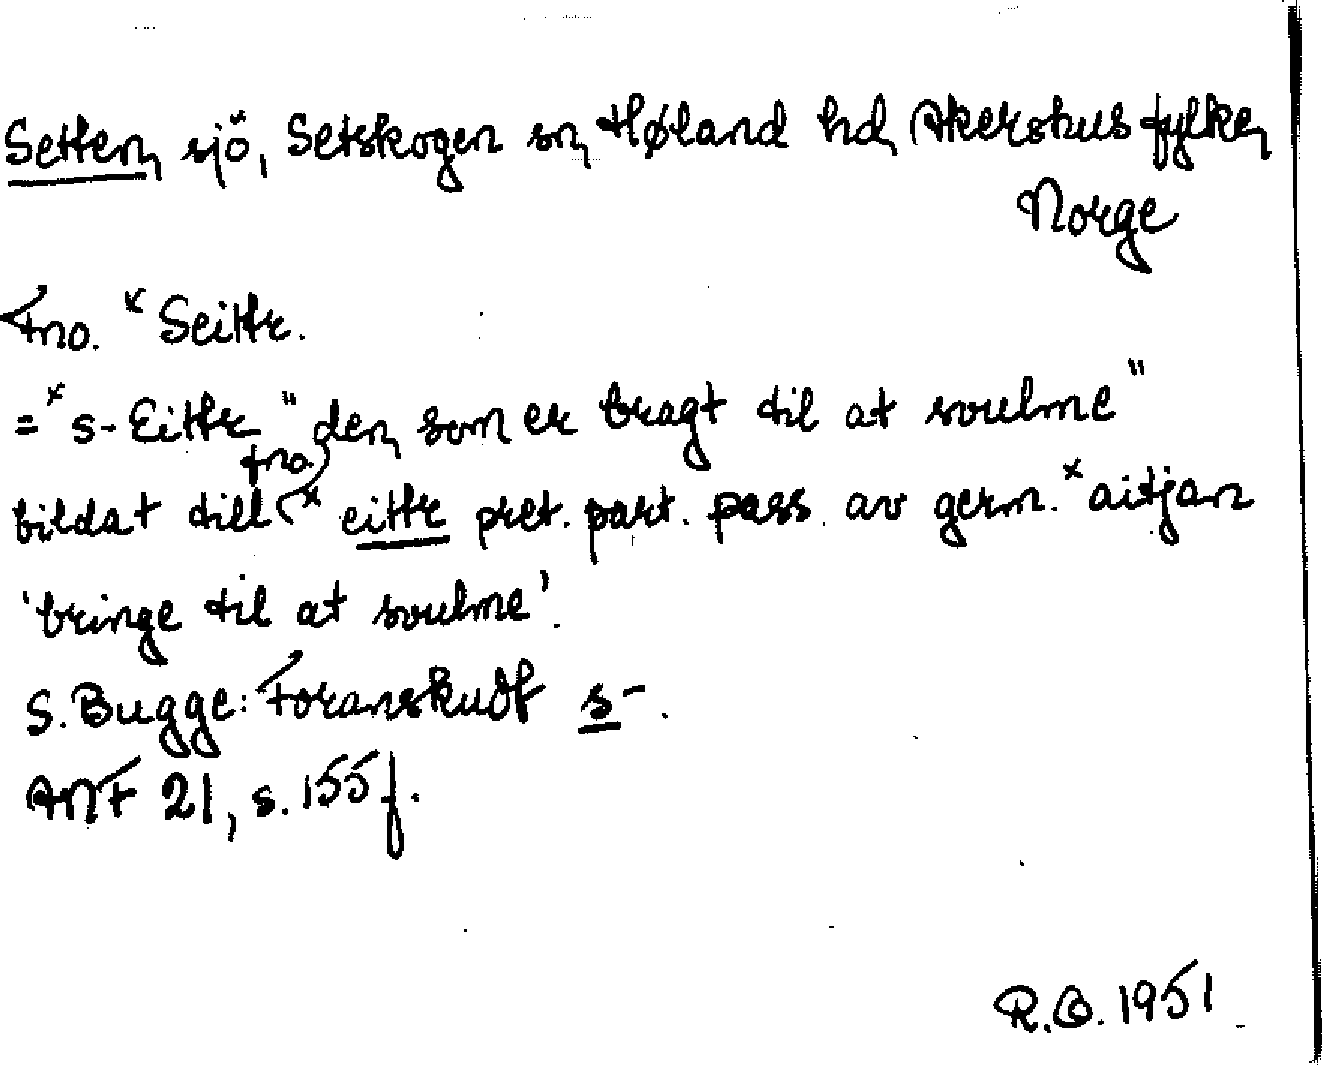 Setten, sjö, Setskogen sn, Høland hd, Akershus fylke,
Norge
Fno. *Seittr.
= *s-Eittr "den, som er bragt til at svulme"
bildat till fno. *eittr pret. part. pass. av germ. *aitjan
'bringe til at svulme'.
S. Bugge: Foranskudt s-.
ANF 21, s. 155 f.
R.O. 1951